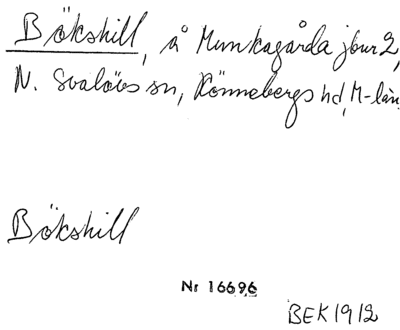 Bökshill, å Munkagårda jbur 2,
N. Svalövs sn, Rönnebergs hd, M-län
Bökshill
Nr 16696
BEK 1912